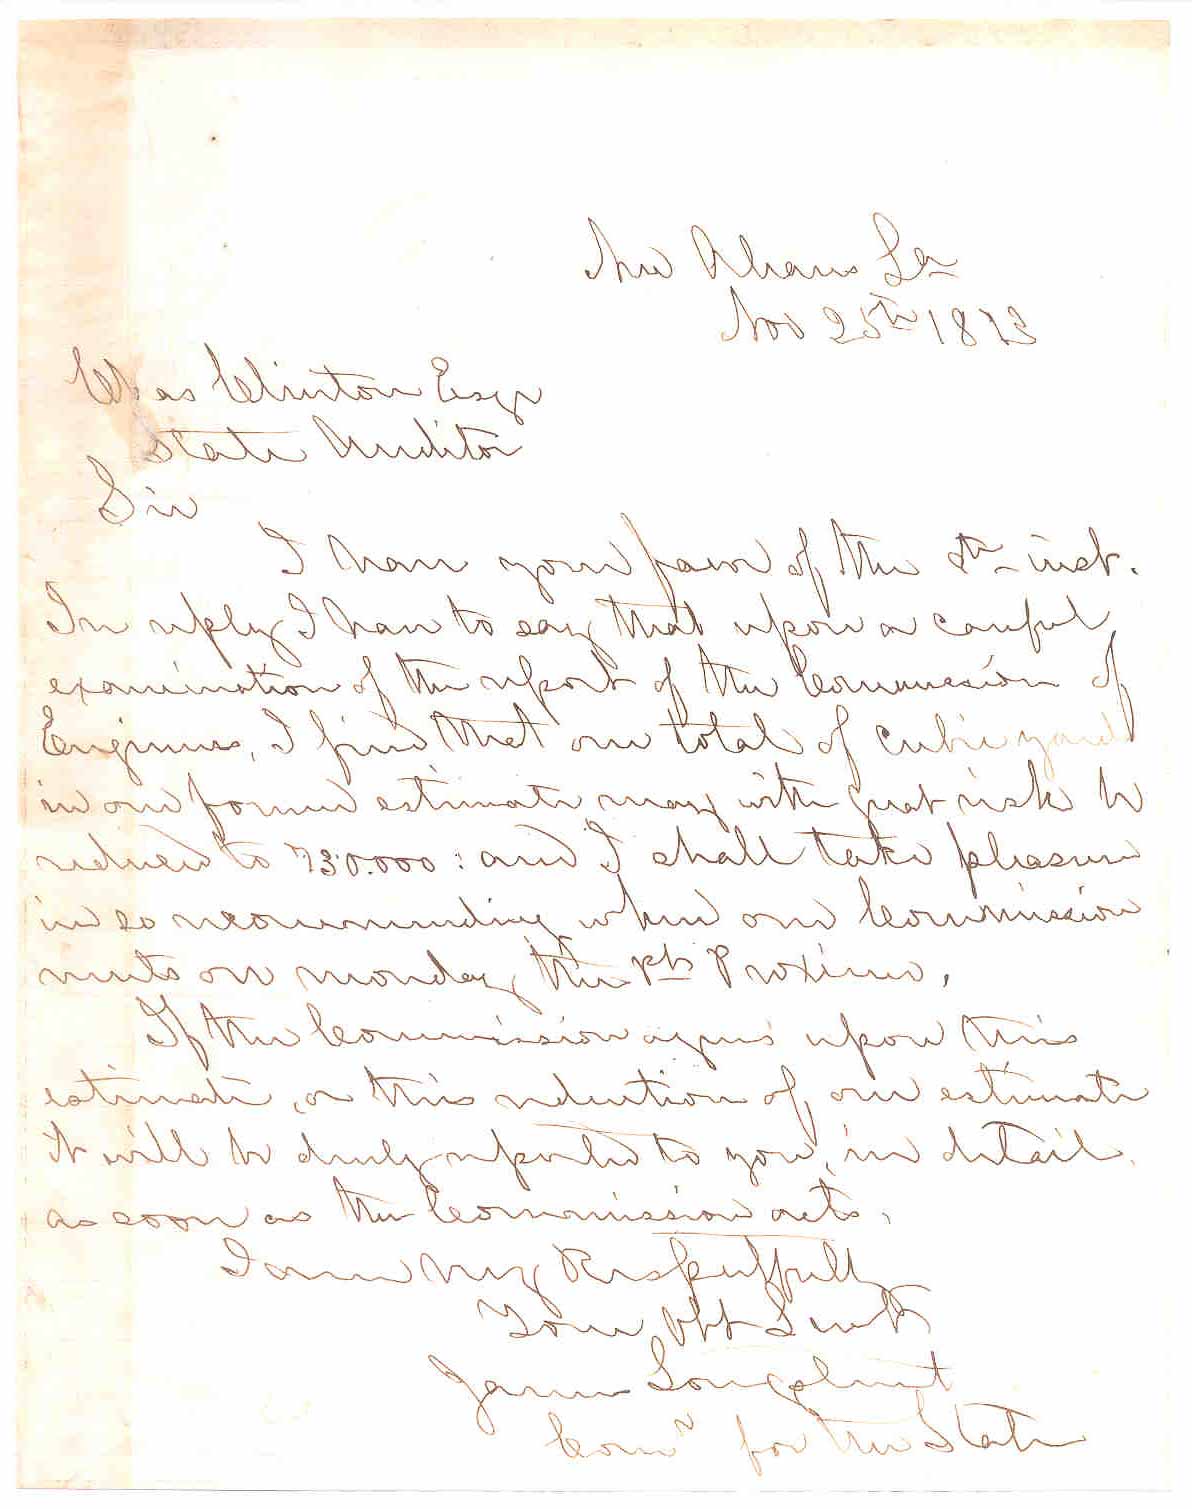 New Orleans La
Nov 25th 1873
Chas Clinton Esqr
State Auditor
Sir
I have your favor of the 8th inst.
In reply I have to say that upon a careful
examination of the report of the Commission of
Engineers, I find that our total of cubic yards
in our former estimate may with just risk be
reduced to 730.000: and I shall take pleasure
in so recommending when our Commission
meets on Monday the 1st Proximo.
If the Commission agrees upon this
estimate, or this reduction of, our estimate
it will be duly reported to you, in detail
as soon as the Commission acts.
I am very Respectfully
Your Obt Servt
James Longstreet
Comr for the State